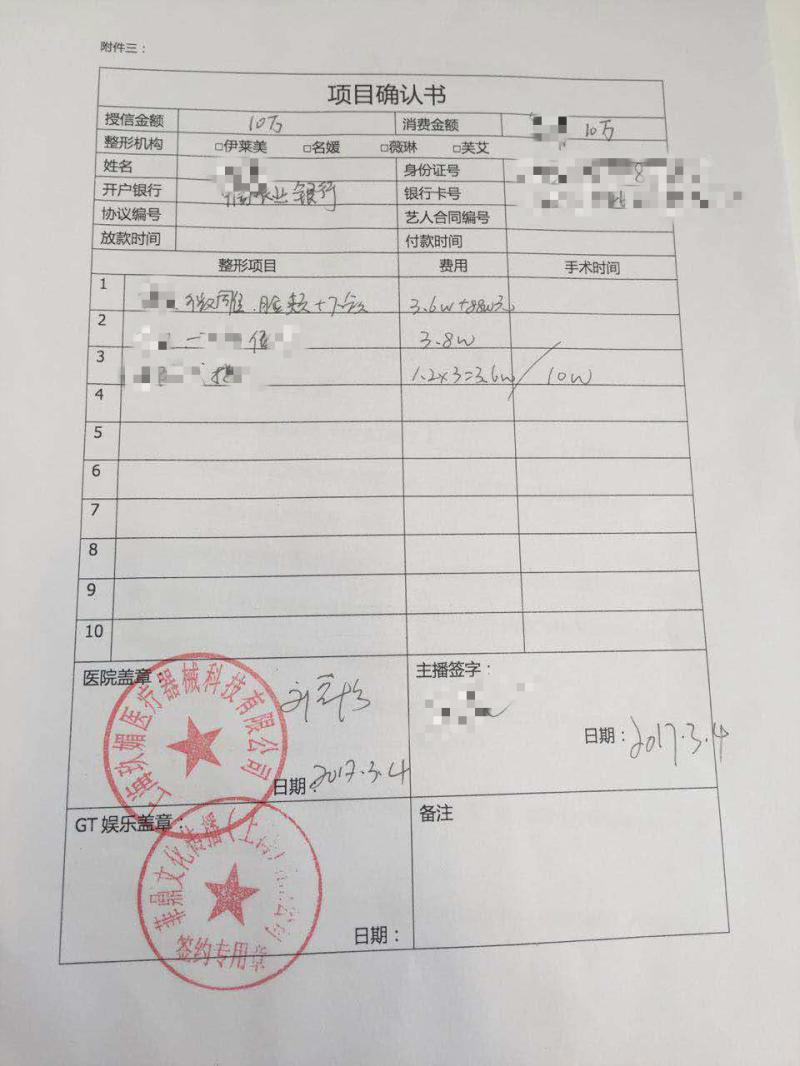 附件三：
项目确认书
授信金额 10万 消费金额 10万
整形机构 □伊莱美 □名媛 □薇琳 □芙艾
姓名 身份证号 8
开户银行 农业银行 银行卡号
协议编号 艺人合同编号
放款时间 付款时间
整形项目 费用 手术时间
1 微雕 3.6w+
2 3.8w
3 1.2×3=3.6w 10w
4
5
6
7
8
9
10
医院盖章： 主播签字：
上海玖媚医疗器械科技有限公司
日期：2017.3.4 日期：2017.3.4
GT 娱乐盖章： 备注
华鼎文化传播（上海）有限公司
签约专用章
日期：